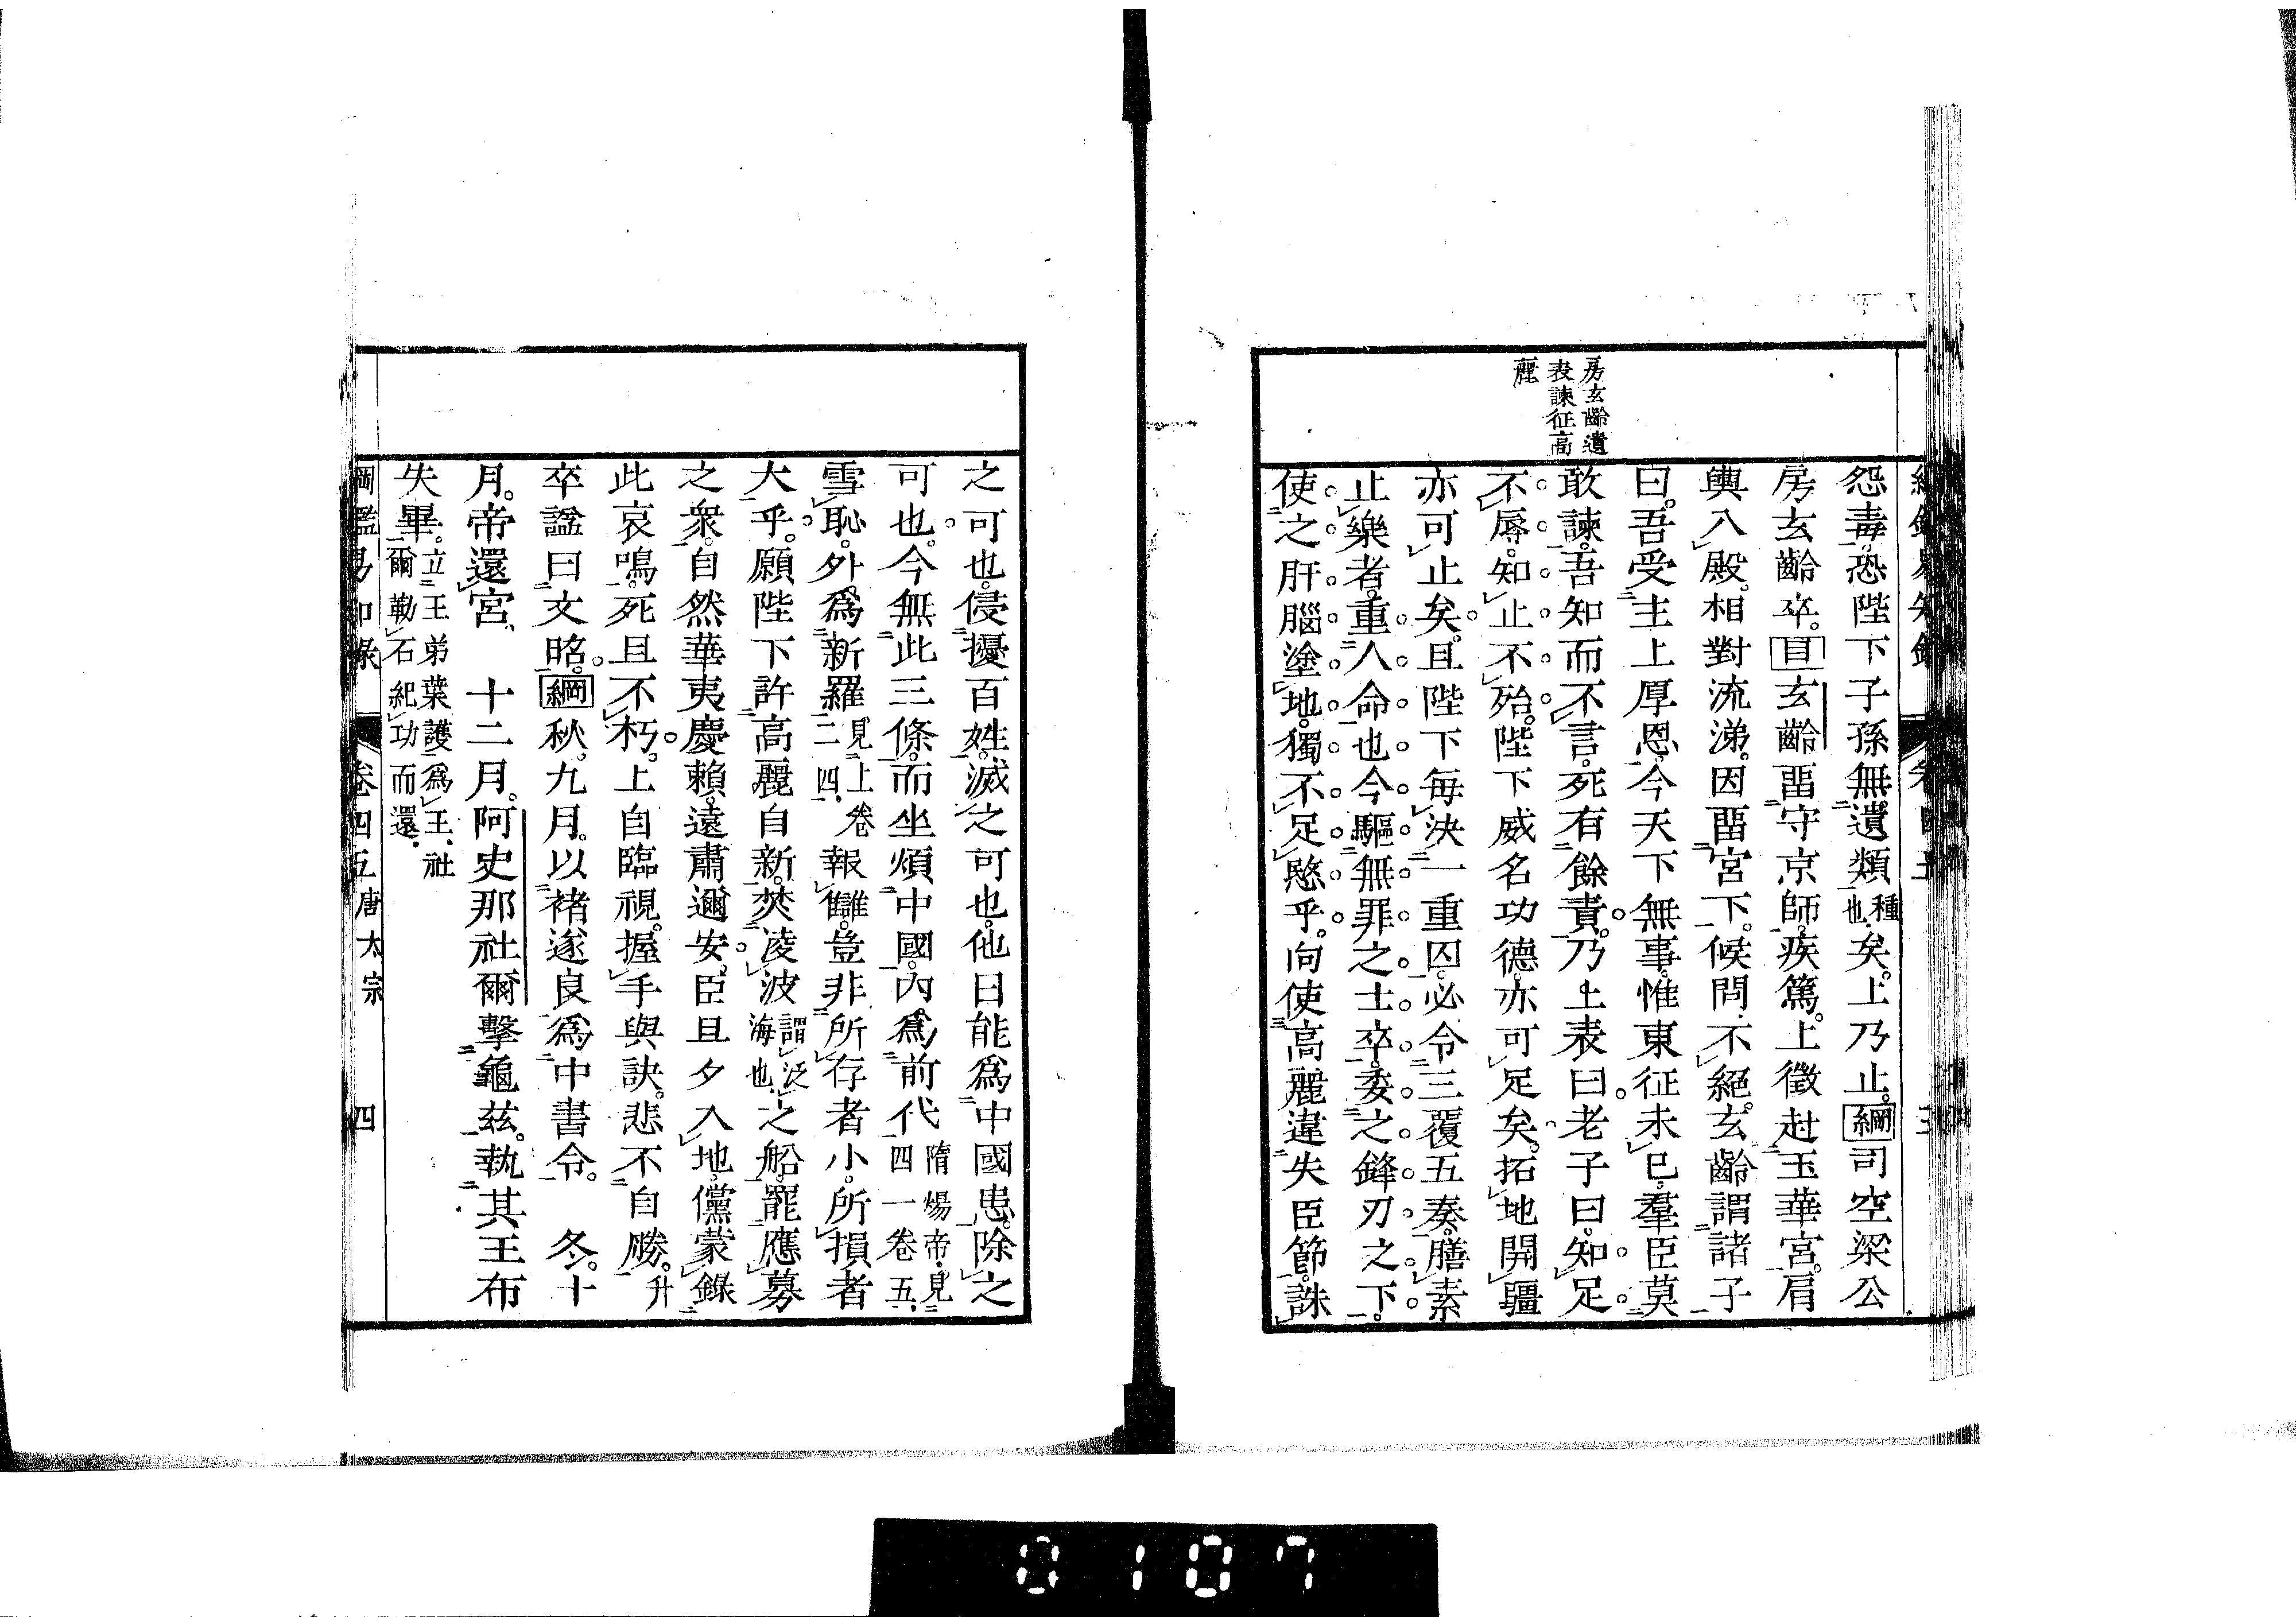 房玄齡遺
表諫征高
麗
怨毒恐陛下子孫無遺類種也矣。上乃止。綱司空梁公
房玄齡卒。目玄齡畱守京師。疾篤。上徵赴玉華宮。肩
輿入殿。相對流涕。因畱宮下。候問不絕。玄齡謂諸子
曰。吾受主上厚恩。今天下無事。惟東征未已。羣臣莫
敢諫。吾知而不言。死有餘責。乃上表曰。老子曰。知足
不辱。知止不殆。陛下威名功德亦可足矣。拓地開疆
亦可止矣。且陛下每決一重囚。必令三覆五奏。膳素
止樂者。重人命也。今驅無罪之士卒。委之鋒刃之下。
使之肝腦塗地。獨不足愍乎。向使高麗違失臣節。誅
之可也。侵擾百姓。滅之可也。他日能爲中國患。除之
可也。今無此三條。而坐煩中國。內爲前代隋煬帝。見四一卷五、
雪恥。外爲新羅見上卷二四、報讎。豈非所存者小。所損者
大乎。願陛下許高麗自新。焚凌波謂泛海也、之船。罷應募
之衆。自然華夷慶賴。遠肅邇安。臣旦夕入地。儻蒙錄
此哀鳴。死且不朽。上自臨視。握手與訣。悲不自勝。升
卒。諡曰文昭。綱秋。九月。以褚遂良爲中書令。 冬。十
月。帝還宮、 十二月。阿史那社爾擊龜茲。執其王布
失畢。立王弟葉護爲王、社爾勒石紀功而還、
綱鑑易知錄 卷四五 唐太宗 四